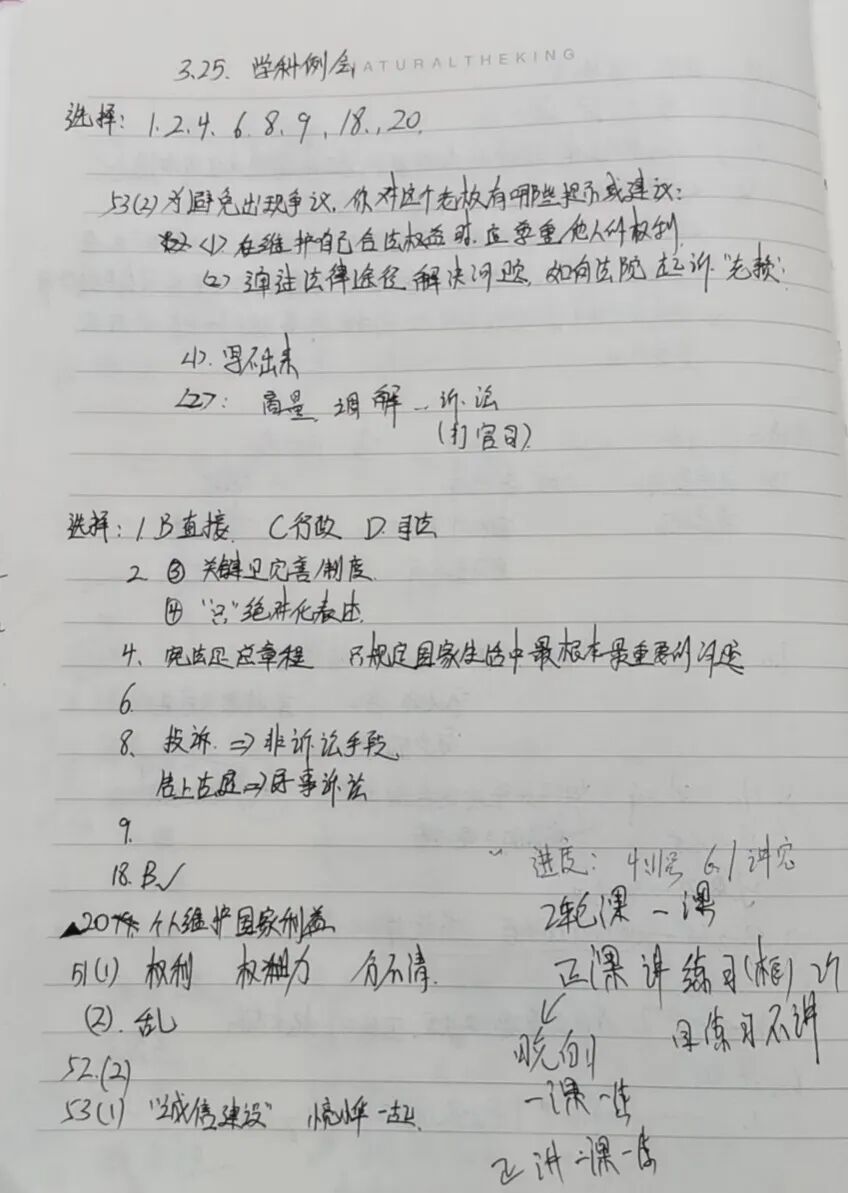 3.25. 学科例会
NATURALTHEKING
选择: 1.2.4. 6.8.9, 18., 20.
53(2) 为避免出现争议, 你对这个老板有哪些提示或建议:
<1> 在维护自己合法权益时, 应尊重他人的权利
(2) 通过法律途径解决问题, 如向法院起诉"老赖"
<1>. 写不出来
<2>: 商量, 调解 — 诉讼
(打官司)
选择: 1. B 直接 C 行政 D. 司法
2. ③ 关键见完善/制度.
④ "只"绝对化表达.
4、宪法是总章程 只规定国家生活中最根本最重要的问题
6.
8、投诉. ⇒ 非诉讼手段.
告上法庭 ⇒ 民事诉讼
9.
18. B✓
▲20 个人维护国家利益
51(1) 权利 权力 分不清.
(2). 乱
52.(2)
53(1) "诚信建设" 混淆一起.
进度: 4.11号 6.1 讲完
2轮课 一课
正课 讲 练习(框)
练习不讲
晚自
一课一练
正 讲 一课一练